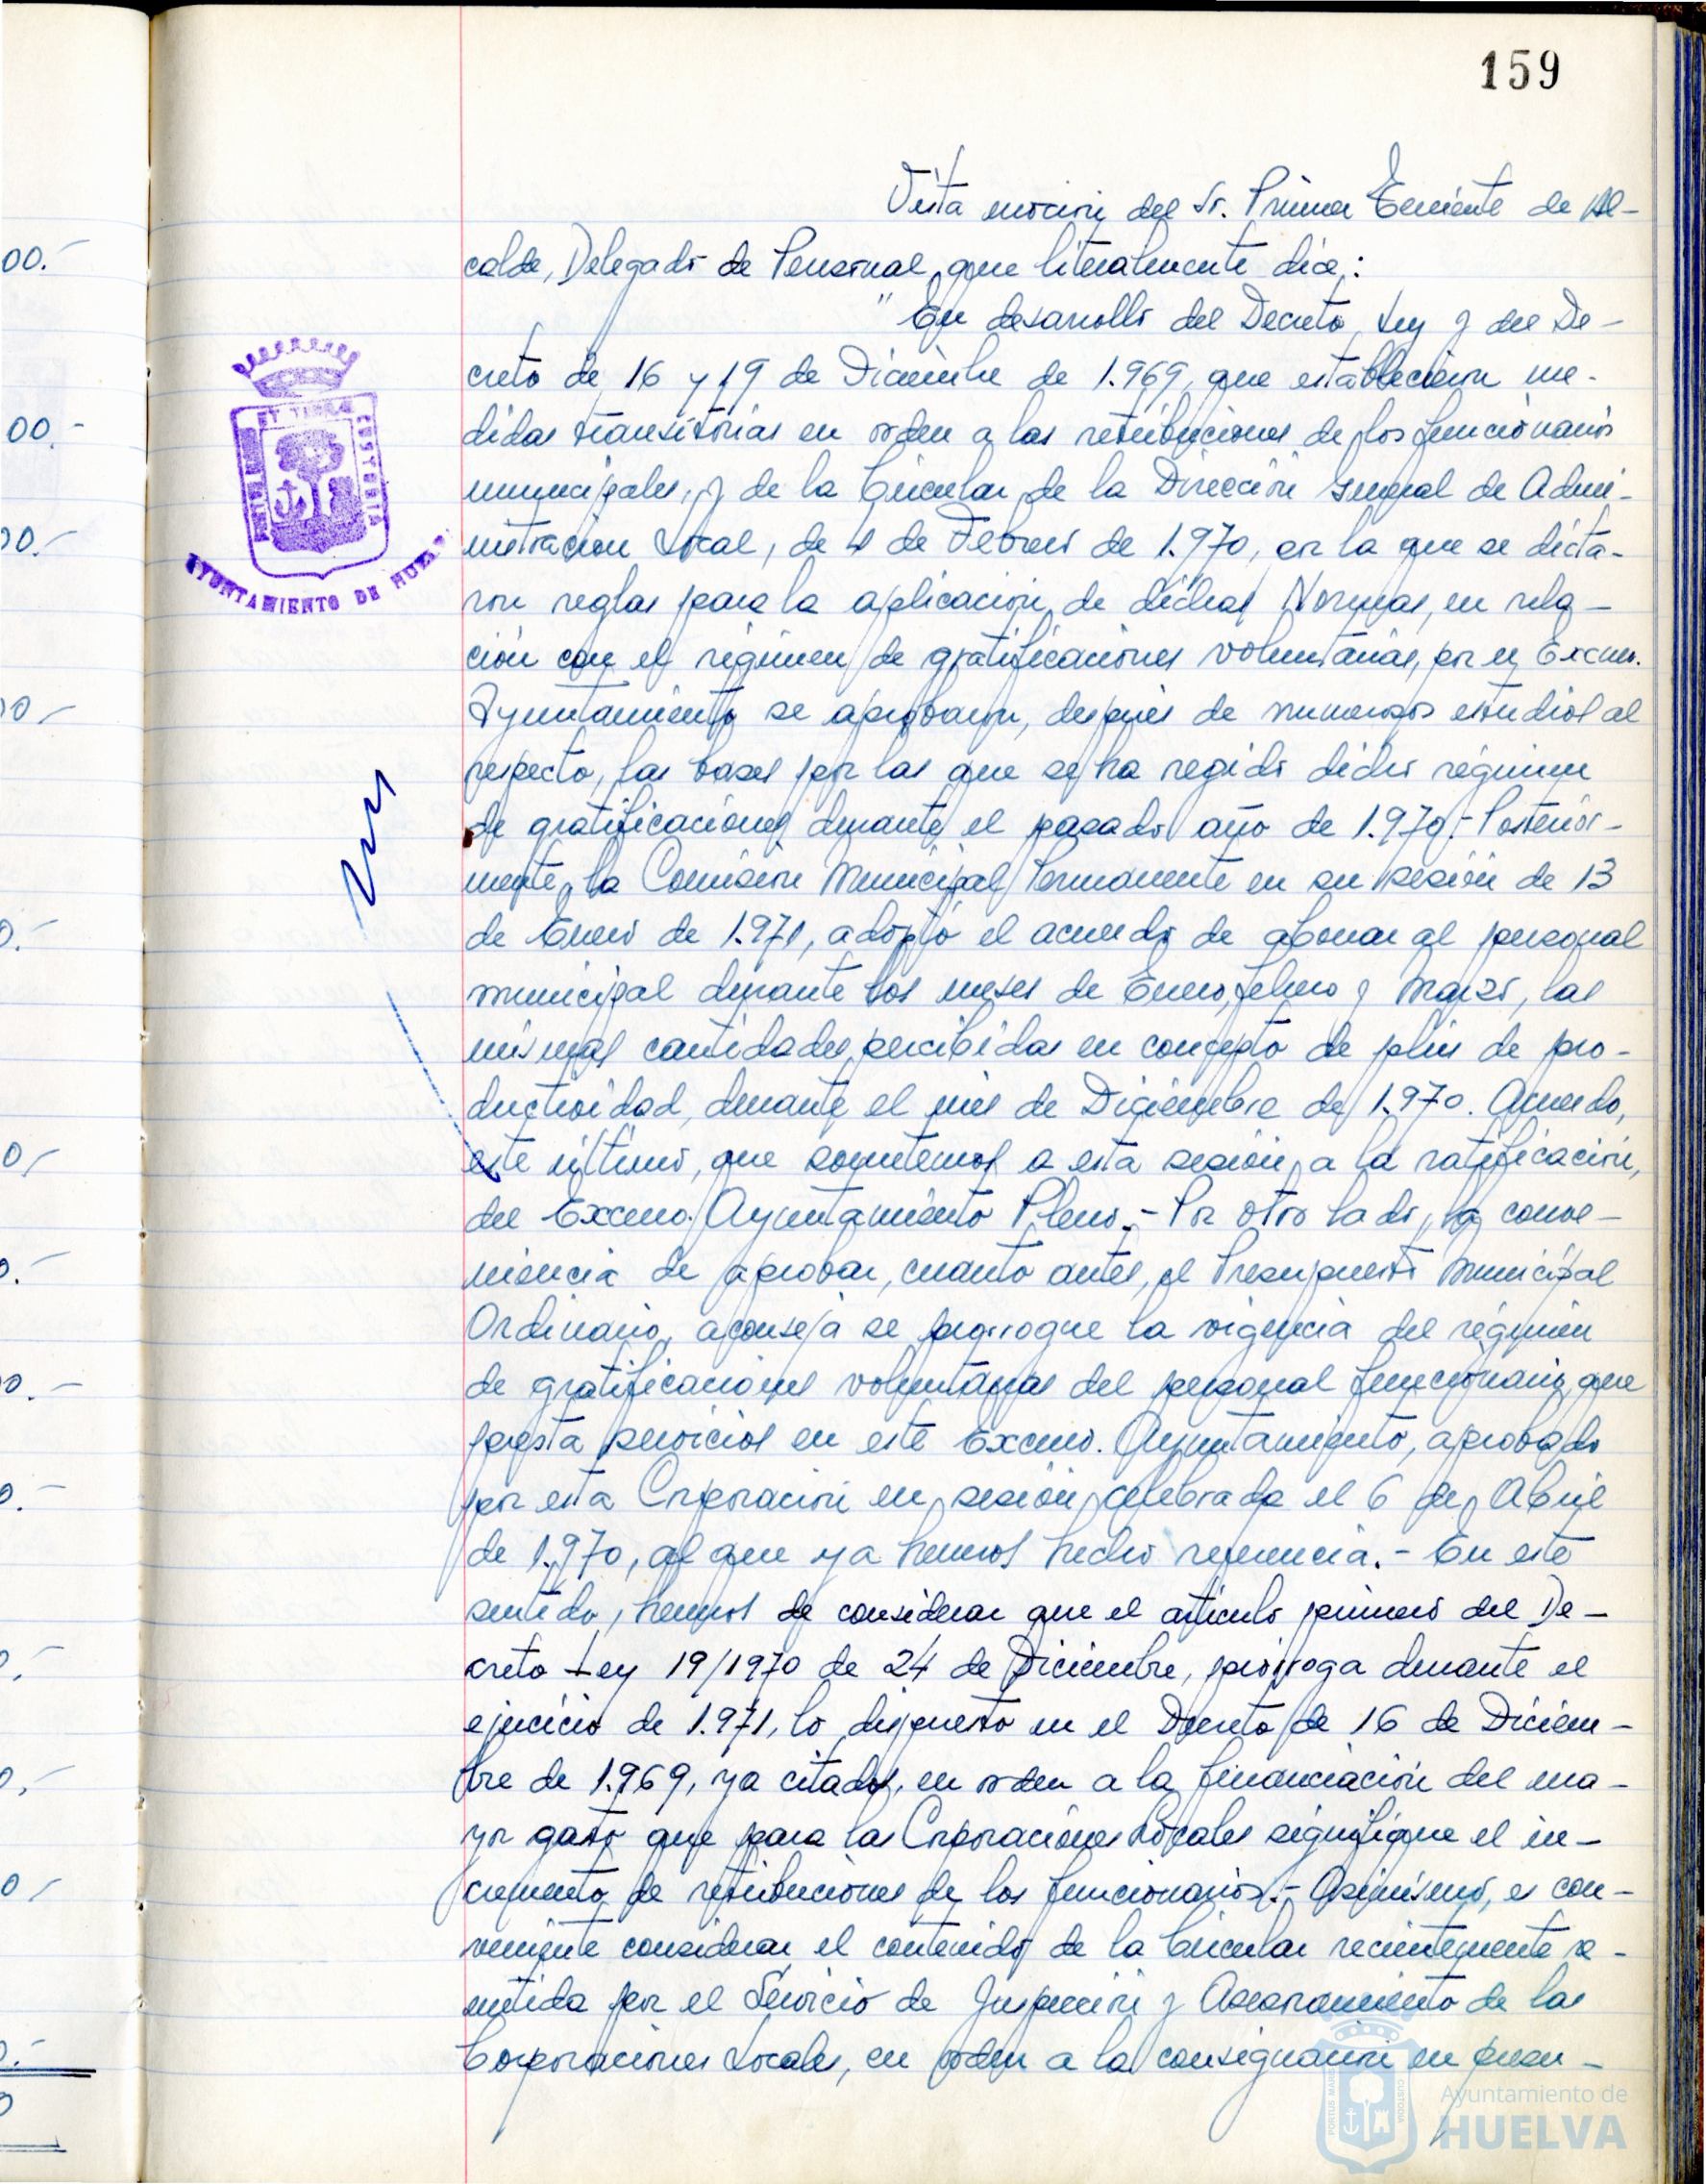 159
Vista moción del Sr. Primer Teniente de Al-
calde, Delegado de Personal, que literalmente dice:
"En desarrollo del Decreto, Ley y del De-
creto de 16 y 19 de Diciembre de 1.969, que establecieron me-
didas transitorias en orden a las retribuciones de los funcionarios
municipales, y de la Circular de la Dirección General de Admi-
nistración Local, de 4 de Febrero de 1.970, en la que se dicta-
ron reglas para la aplicación de dichas Normas, en rela-
ción con el régimen de gratificaciones voluntarias, por el Excmo.
Ayuntamiento se aprobaron, después de numerosos estudios al
respecto, las bases por las que se ha regido dicho régimen
de gratificaciones durante el pasado año de 1.970.- Posterior-
mente, la Comisión Municipal Permanente en su sesión de 13
de Enero de 1.971, adoptó el acuerdo de abonar al personal
municipal durante los meses de Enero, febrero y Marzo, las
mismas cantidades percibidas en concepto de plus de pro-
ductividad, durante el mes de Diciembre de 1.970. Acuerdo,
este último, que sometemos a esta sesión, a la ratificación,
del Excmo. Ayuntamiento Pleno.- Por otro lado, la conve-
niencia de aprobar, cuanto antes, el Presupuesto Municipal
Ordinario, aconseja se prorrogue la vigencia del régimen
de gratificaciones voluntarias del personal funcionario que
presta servicios en este Excmo. Ayuntamiento, aprobado
por esta Corporación en sesión celebrada el 6 de Abril
de 1.970, al que ya hemos hecho referencia.- En este
sentido, hemos de considerar que el artículo primero del De-
creto Ley 19/1970 de 24 de Diciembre, prórroga durante el
ejercicio de 1.971, lo dispuesto en el Decreto de 16 de Diciem-
bre de 1.969, ya citados, en orden a la financiación del ma-
yor gasto que para las Corporaciones Locales signifique el in-
cremento de retribuciones de los funcionarios.- Asimismo, es con-
veniente considerar el contenido de la Circular recientemente re-
mitida por el Servicio de Inspección y Asesoramiento de las
Corporaciones Locales, en orden a la consignación en presu-
AYUNTAMIENTO DE HUELVA
00.-
00.-
00.-
Ayuntamiento de
HUELVA